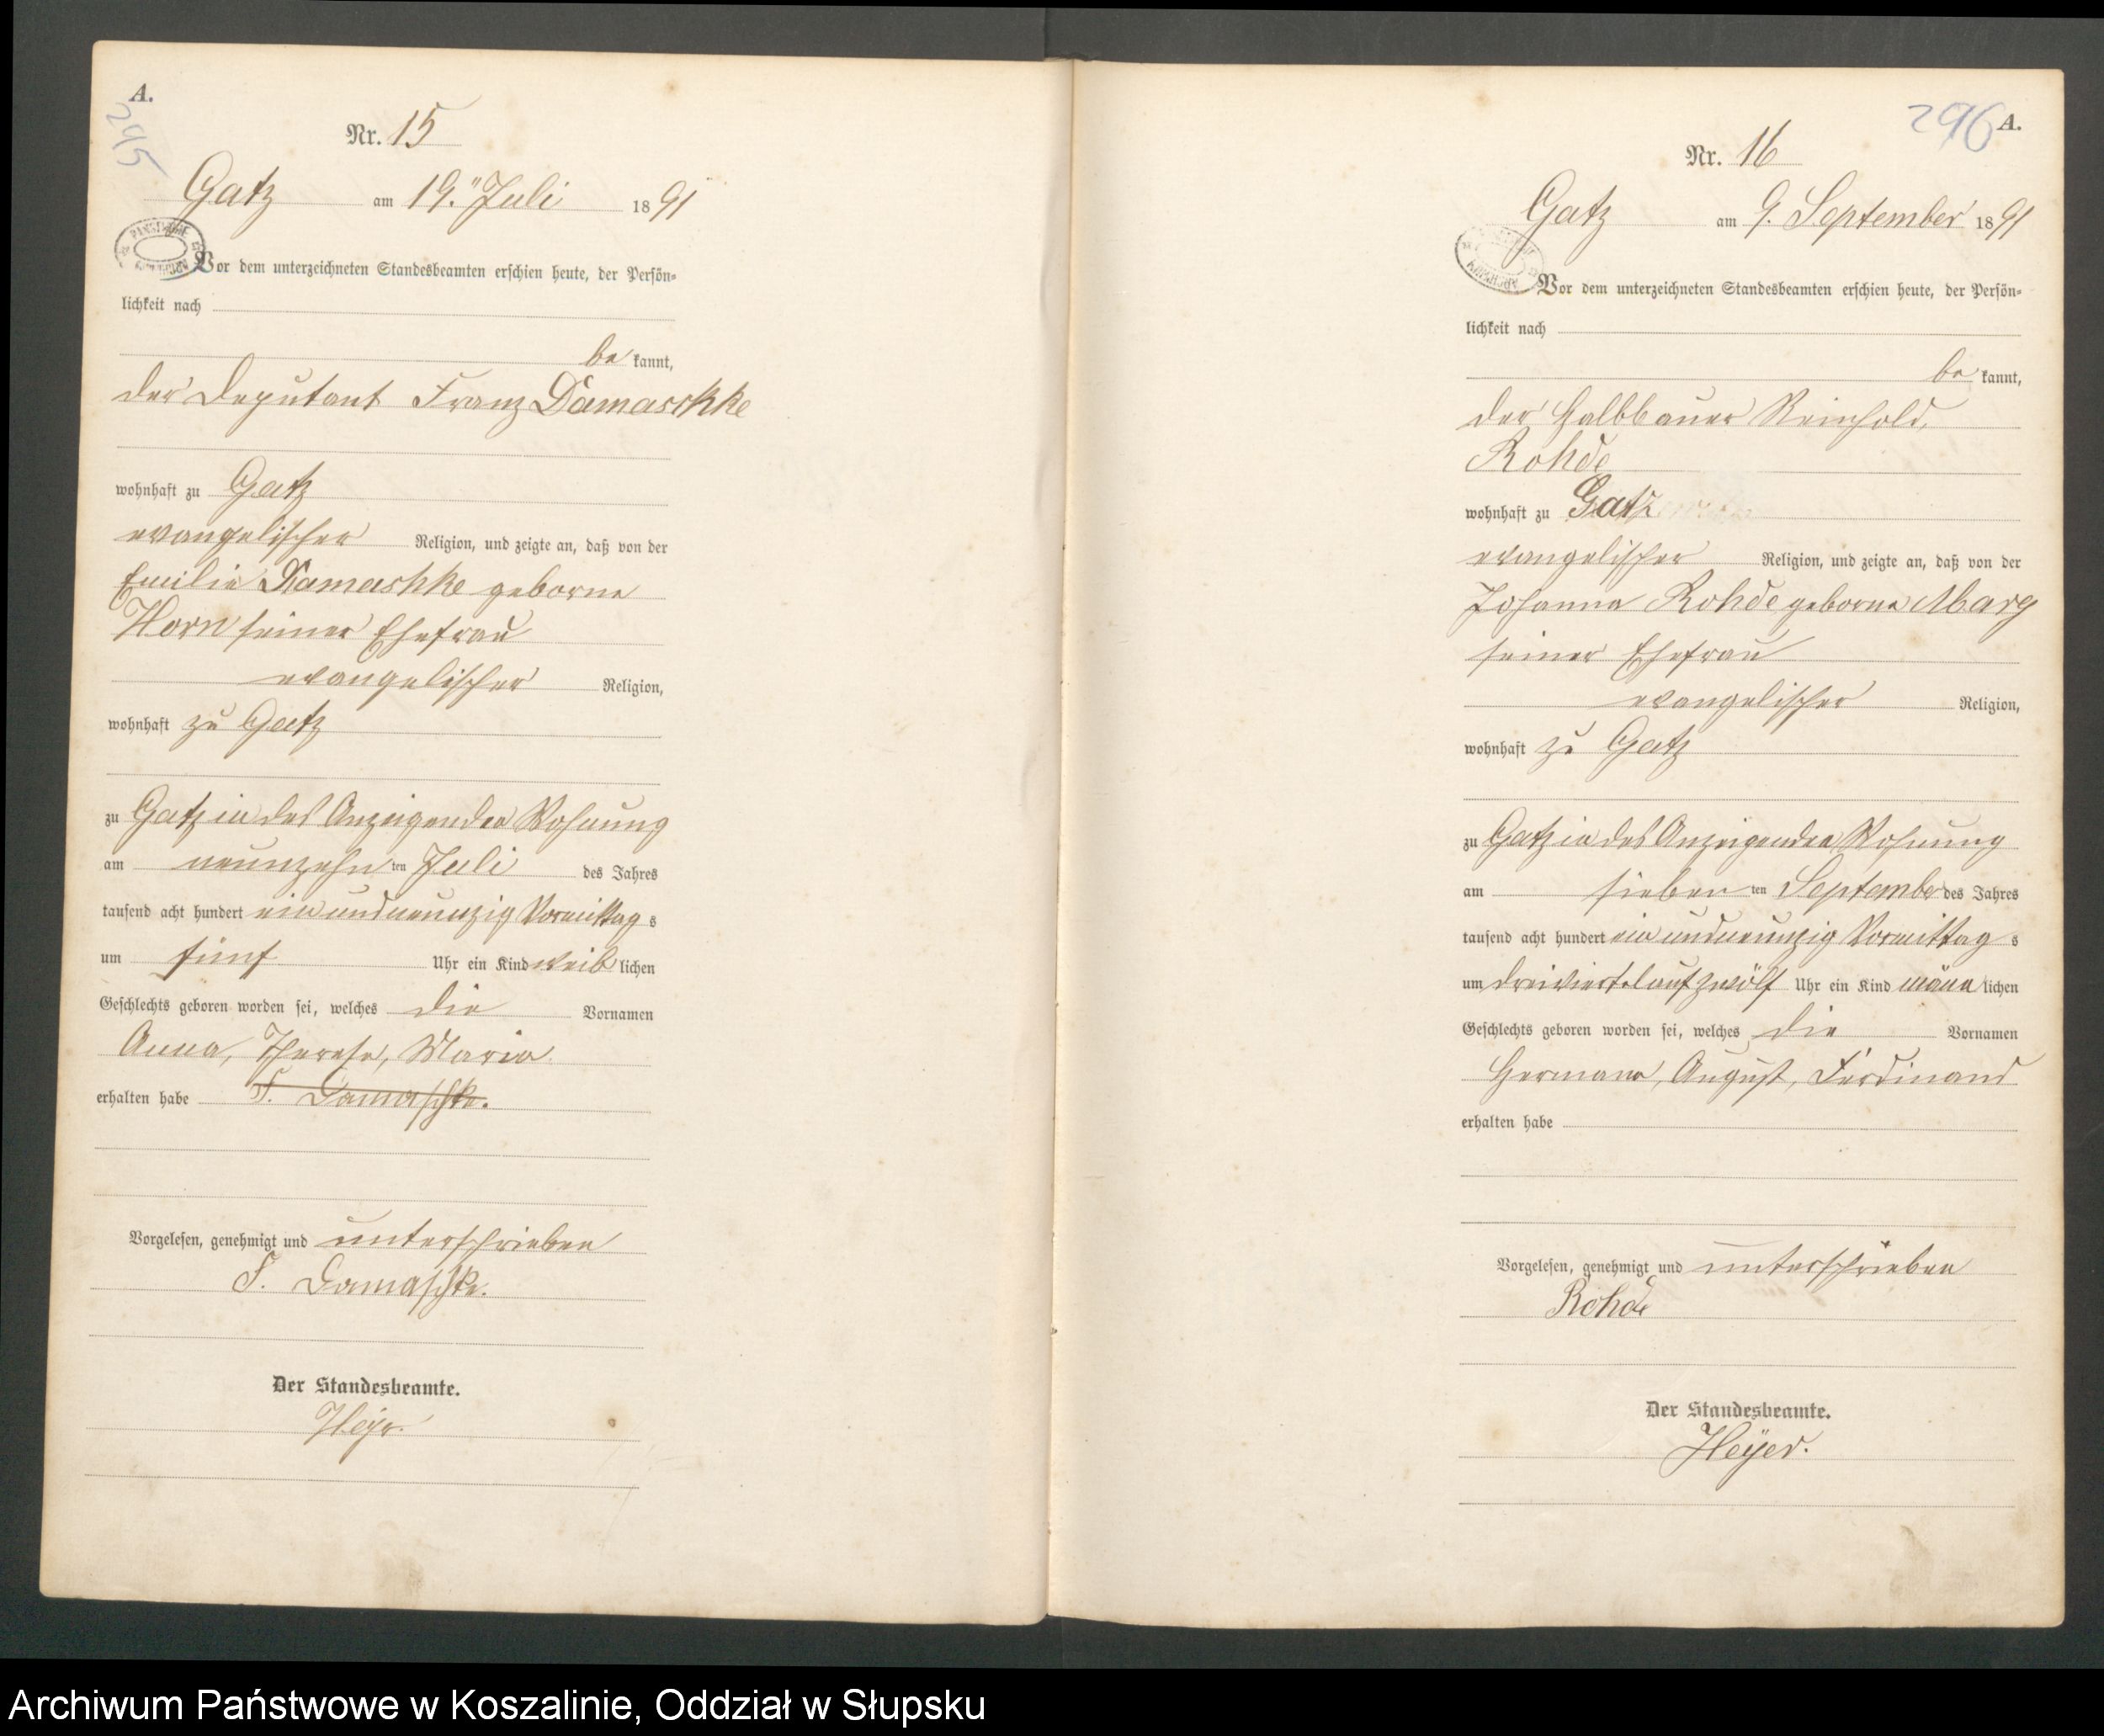 A.
295
Nr. 15
Gatz am 19. Juli 1891
Vor dem unterzeichneten Standesbeamten erschien heute, der Persön-
lichkeit nach
be kannt,
der Deputant Franz Damaschke
wohnhaft zu Gatz
evangelischer Religion, und zeigte an, daß von der
Emilie Damaschke geborne
Horn seiner Ehefrau
evangelischer Religion,
wohnhaft zu Gatz
zu Gatz in des Anzeigenden Wohnung
am neunzehn ten Juli des Jahres
tausend acht hundert ein und neunzig Vormittag s
um fünf Uhr ein Kind weib lichen
Geschlechts geboren worden sei, welches die Vornamen
Anna, Therese, Marie
erhalten habe F. Damaschke.
Vorgelesen, genehmigt und unterschrieben
F. Damaschke.
Der Standesbeamte.
Heyer.
296 A.
Nr. 16
Gatz am 9. September 1891
Vor dem unterzeichneten Standesbeamten erschien heute, der Persön-
lichkeit nach
be kannt,
der Halbbauer Reinhold
Rohde
wohnhaft zu Gatz
evangelischer Religion, und zeigte an, daß von der
Johanna Rohde geborne Marg
seiner Ehefrau
evangelischer Religion,
wohnhaft zu Gatz
zu Gatz in des Anzeigenden Wohnung
am sieben ten September des Jahres
tausend acht hundert ein und neunzig Vormittag s
um dreiviertel auf zwölf Uhr ein Kind männ lichen
Geschlechts geboren worden sei, welches die Vornamen
Hermann, August, Ferdinand
erhalten habe
Vorgelesen, genehmigt und unterschrieben
Rohde
Der Standesbeamte.
Heyer.
Archiwum Państwowe w Koszalinie, Oddział w Słupsku